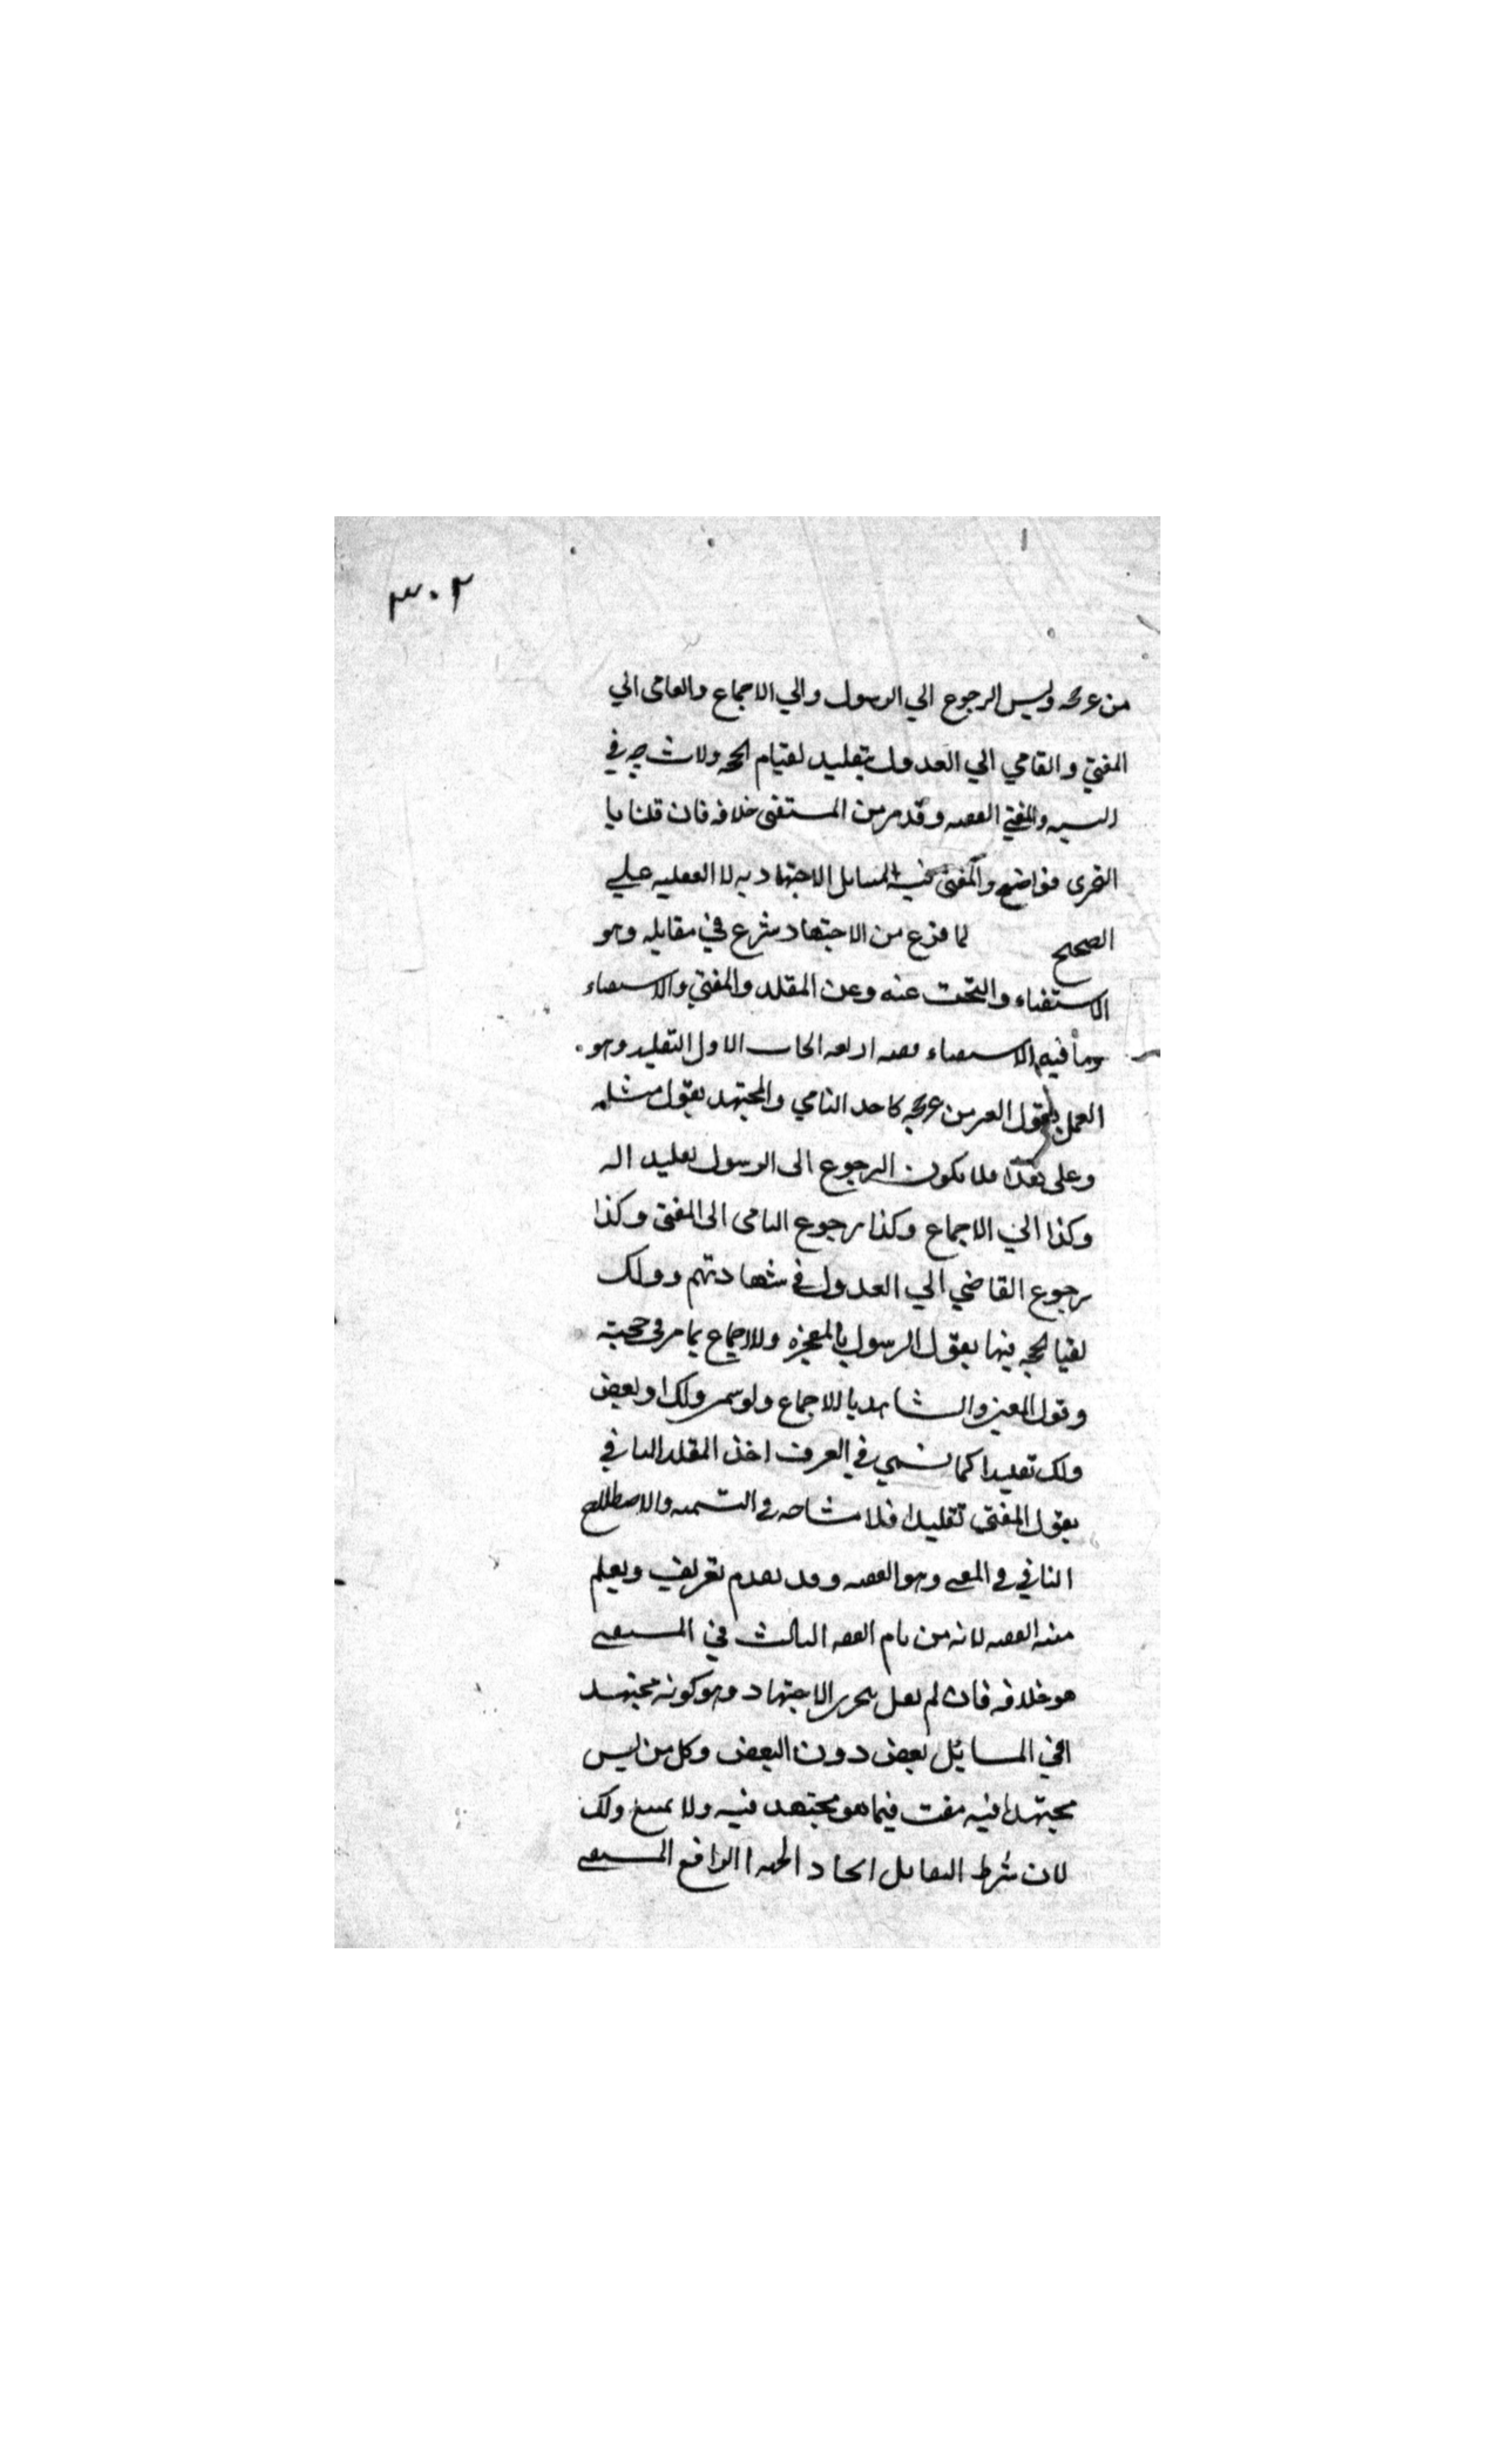 ٣٠٢
من غير حجه وليس الرجوع الي الرسول والي الاجماع والعامى الي
المفتي والقاضي الي العدول بتقليد لقيام الحجه ولا مشاحه في
التسميه والمفتي الفقيه وقد مر من المستفتى خلافه فان قلنا با
التجزى فواضح والمستفتى فيه المسايل الاجتهاديه لا العقليه علي
الصحيح لما فرغ من الاجتهاد شرع في مقابله وهو
الاستفتاء والبحث عنه وعن المقلد والمفتي والاستفتاء
وما فيه الاستفتاء فهذه اربعه ابحاث الاول التقليد وهو
العمل بقول الغير من غير حجه كاخذ العامي والمجتهد بقول مثله
وعلى هذا فلا يكون الرجوع الى الرسول تقليد اله
وكذا الي الاجماع وكذا رجوع العامى الى المفتى وكذا
رجوع القاضي الي العدول في شهادتهم وذلك
لقيام الحجه فيها بقول الرسول بالمعجزه وللاجماع بما مر في حجيته
وقول المفتي والشاهد بالاجماع ولو سمي ذلك او بعض
ذلك تقليدا كما نسمي في العرف اخذ المقلد العامي
بقول المفتى تقليدا فلا مشاحه في التسميه والاصطلاح
الثاني في المفتى وهو الفقيه وقد تقدم تعريف ويعلم
منه الفقيه لانه من قام الفقه الثالث في المستفتى
هو خلافه فان لم نقل بتجزى الاجتهاد وهو كونه مجتهد
افي المسايل بعض دون البعض وكل من ليس
مجتهدا فيه مفت فيما هو مجتهد فيه ولا يمتنع ذلك
لان شرط التقابل اتحاد الجهه الرابع المستفتى